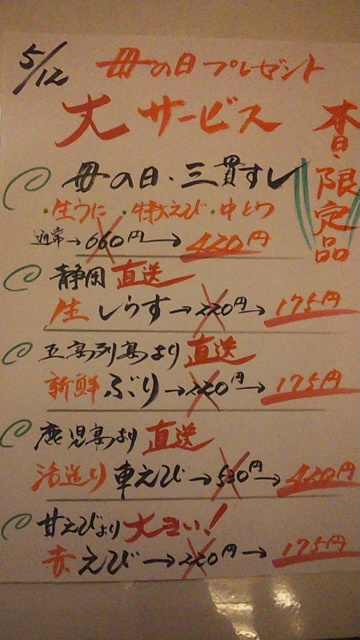 5/12 母の日プレゼント
大サービス
本日限定品
母の日・三貫すし
・生うに ・特大えび・中とろ
通常→660円→420円
静岡直送
生しらす→220円→175円
五島列島より直送
新鮮ぶり→220円→175円
鹿児島より直送
活造り車えび→530円→420円
甘えびより大きい!
赤えび→220円→175円